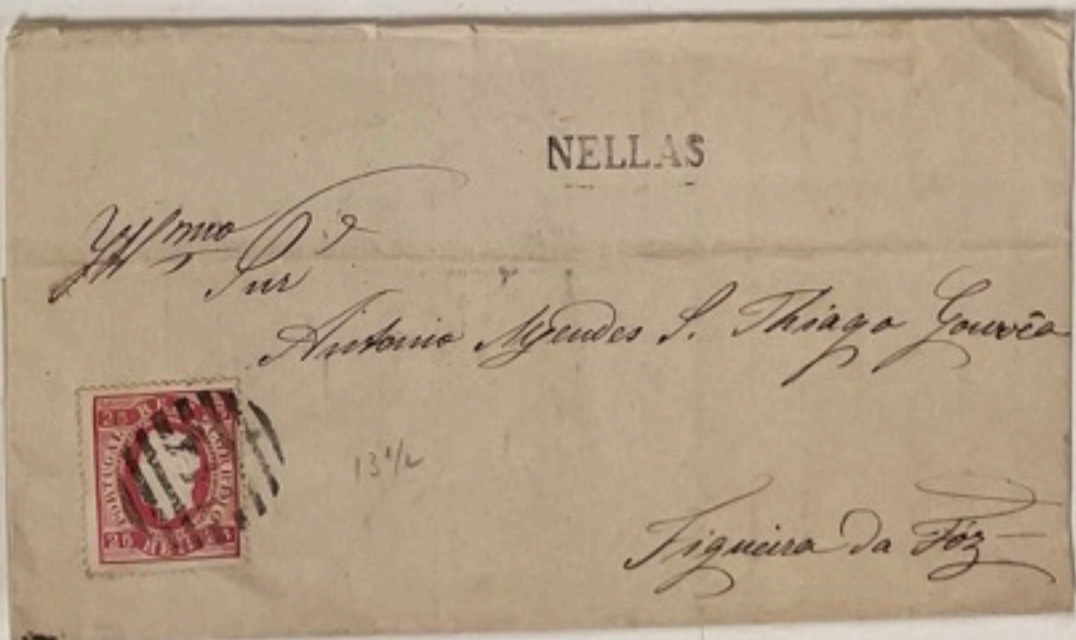 NELLAS
Illmo Sr
Snr
Antonio Mendes S. Thiago Gouvêa
25 REIS
PORTUGAL
CORREIO
25 REIS
13 1/2
Figueira da Fóz